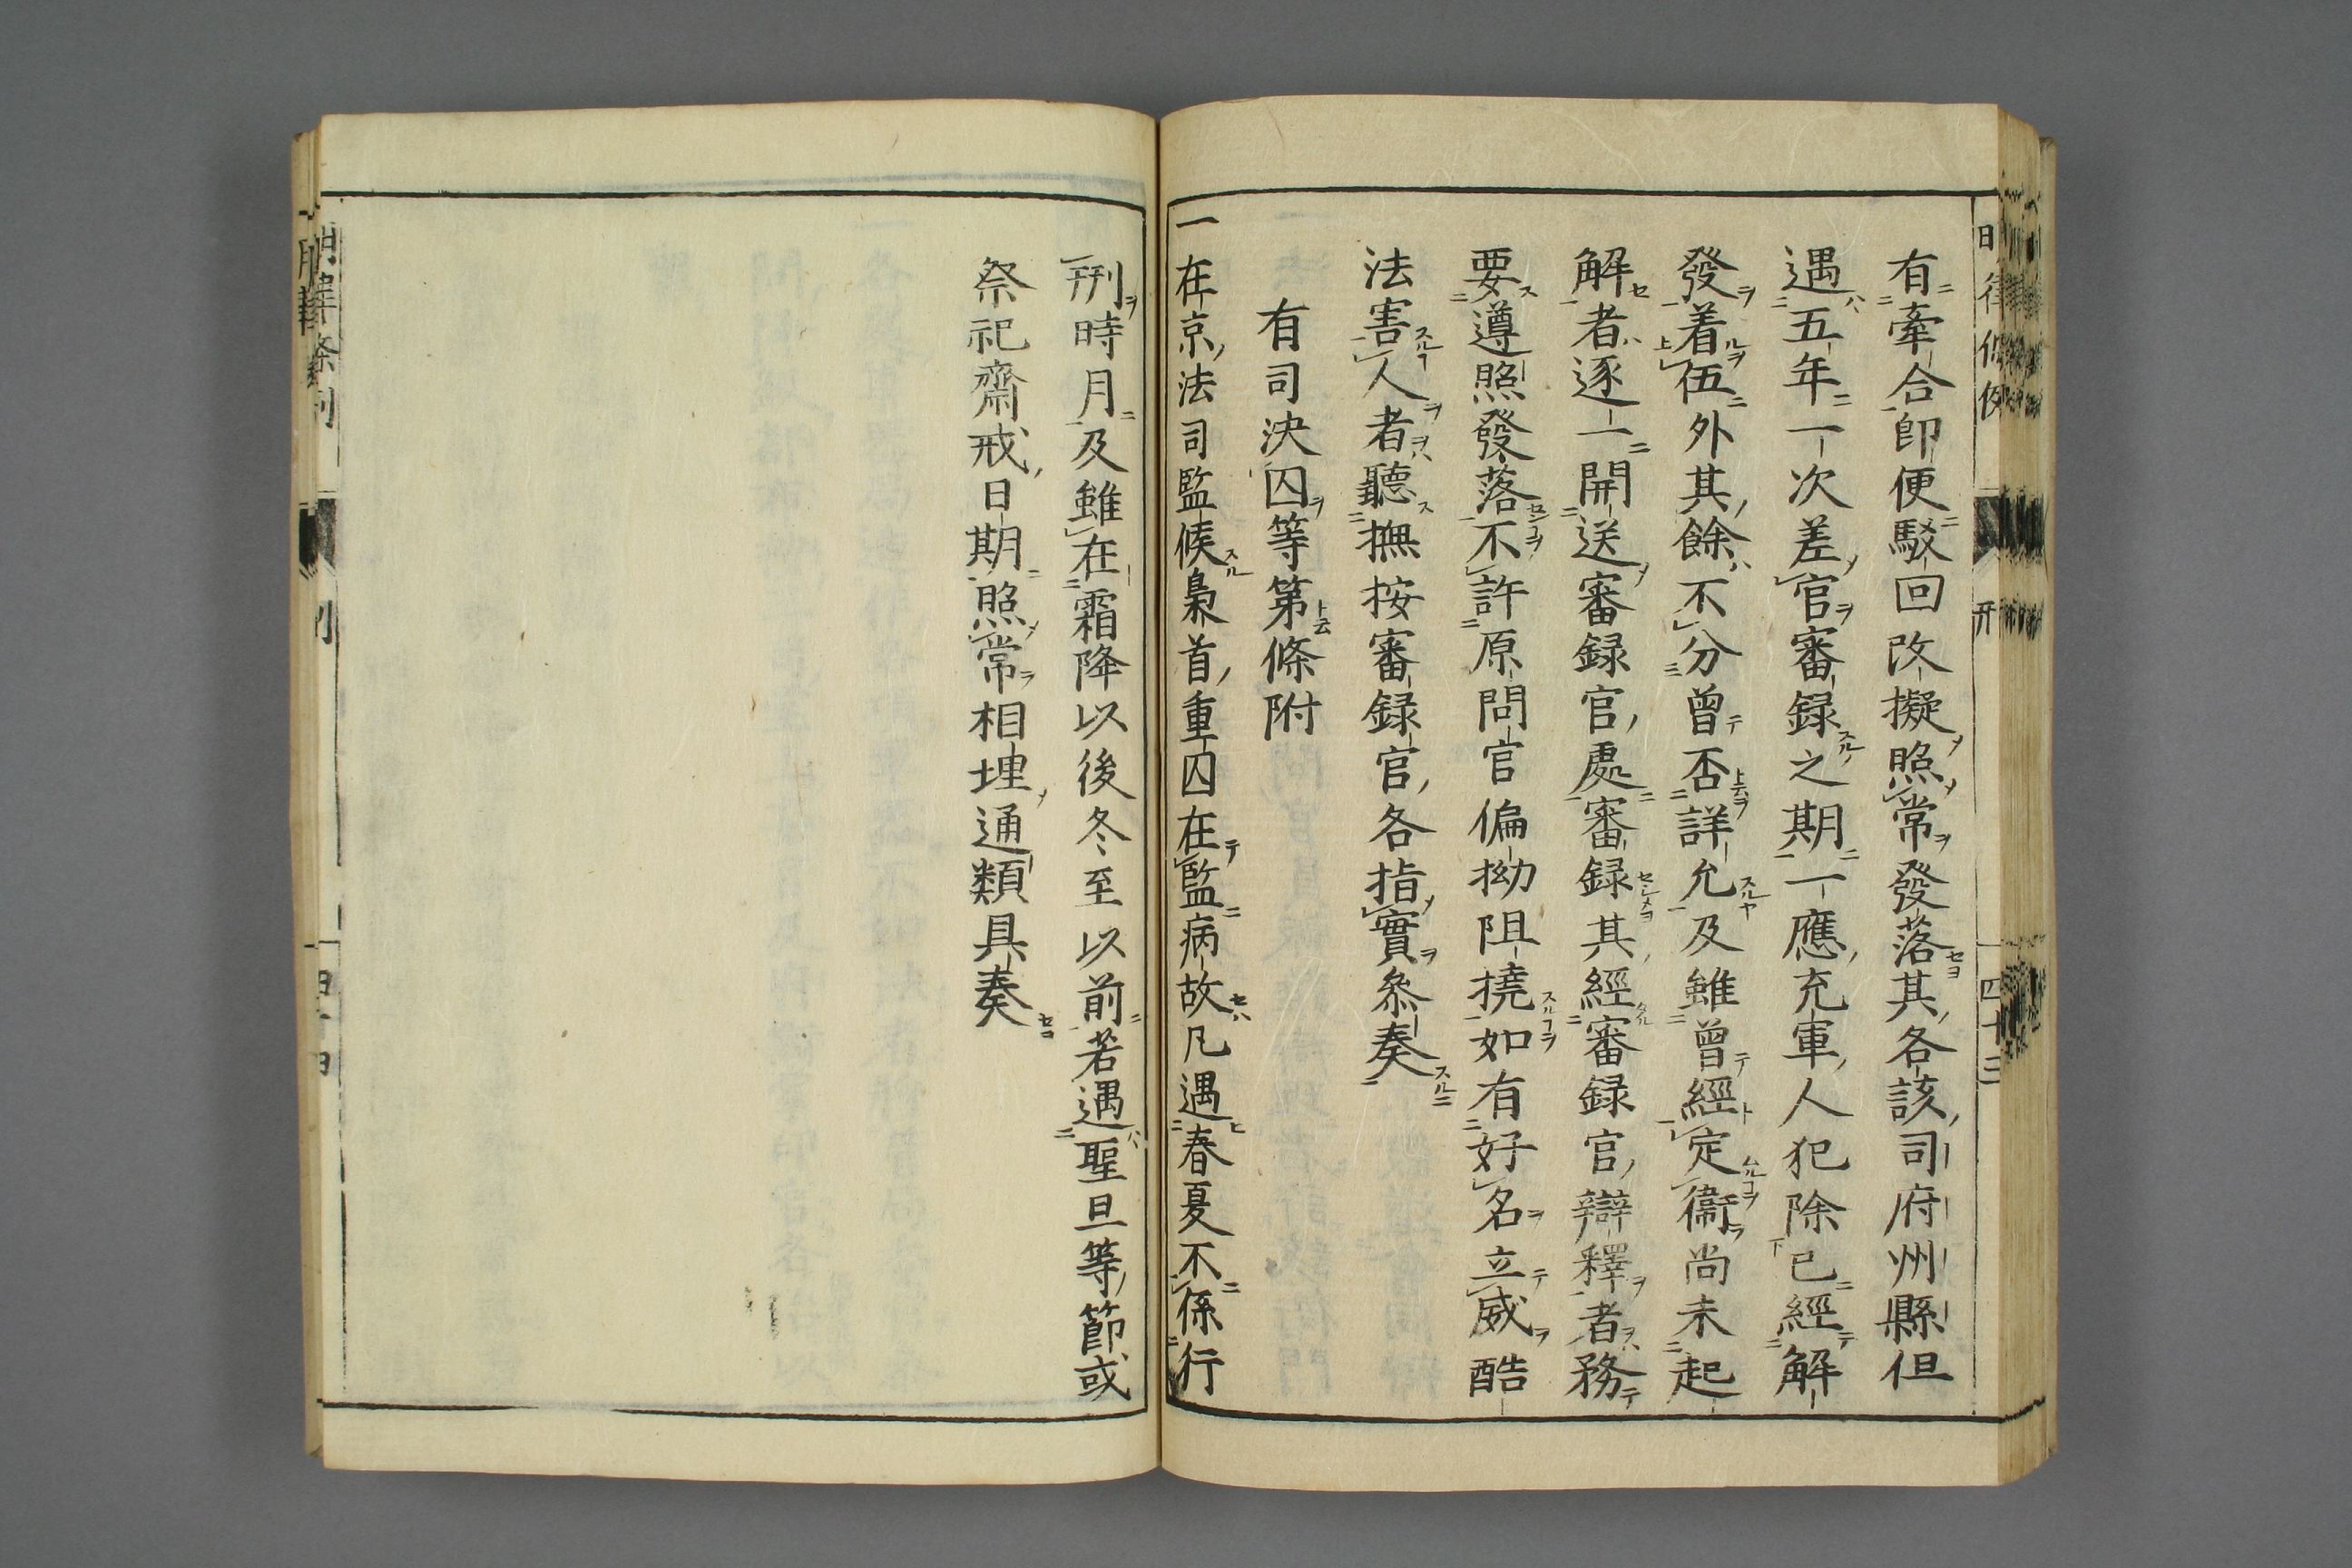 有牽合即便駁回改擬照常發落其各該司府州縣但
遇五年一次差官審録之期一應充軍人犯除已經解
發着伍外其餘不分曾否詳允及雖曾經定衞尚未起
解者逐一開送審録官處審録其經審録官辯釋者務
要遵照發落不許原問官偏拗阻撓如有好名立威酷
法害人者聽撫按審録官各指實叅奏
有司決囚等第條附
一在京法司監候梟首重囚在監病故凡遇春夏不係行
刑時月及雖在霜降以後冬至以前若遇聖旦等節或
祭祀齋戒日期照常相埋通類具奏